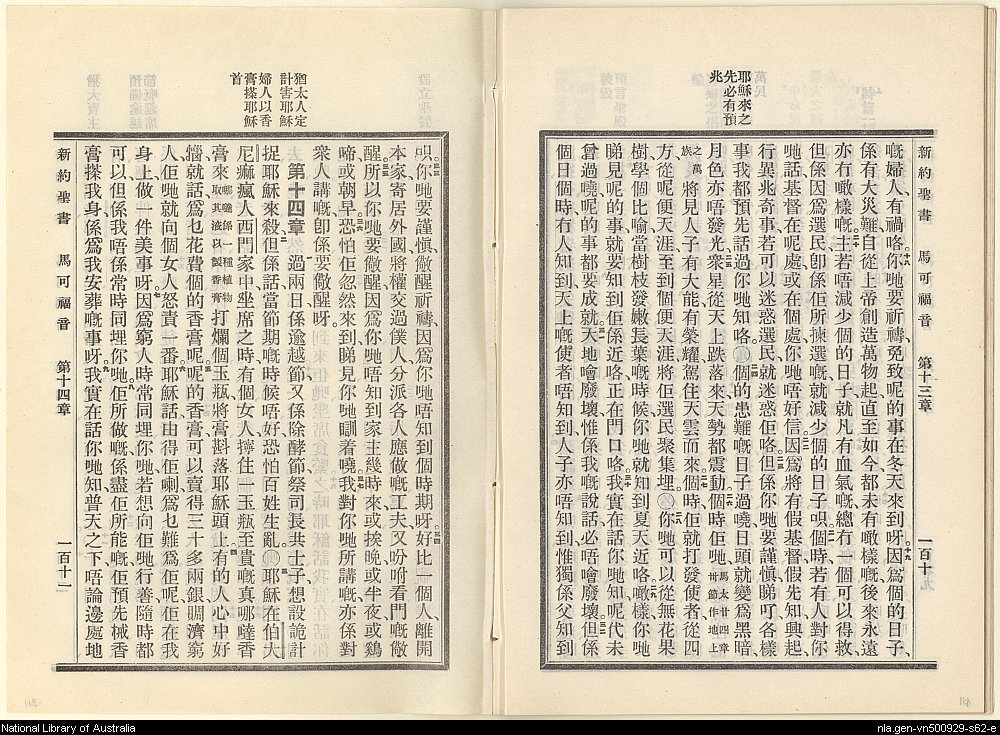 萬民
耶穌來之
先必有預
兆
新約聖書 馬可福音 第十三章 一百十
嘅婦人有禍咯你哋要祈禱免致呢的事在冬天來到呀因爲個的日子
係有大災難自從上帝創造萬物起直至如今都未有噉樣嘅後來永遠
亦冇噉樣嘅主若唔減少個的日子就凡有血氣嘅總冇一個可以得救
但係因爲選民卽係佢所揀選嘅就減少個的日子唄個時若有人對你
哋話基督在呢處或在個處你哋唔好信因爲將有假基督假先知興起
行異兆奇事若可以迷惑選民就迷惑佢咯但係你哋要謹慎睇吖各樣
事我都預先話過你哋知咯個的患難嘅日子過嘵日頭就變爲黑暗
月色亦唔發光衆星從天上跌落來天勢都震動個時佢哋馬太廿四章
卅節作地上
之萬
族將見人子有大能有榮耀駕住天雲而來個時佢就打發使者從四
方從呢便天涯至到個便天涯將佢選民聚集埋你哋可以從無花果
樹學個比喻當個樹枝發嫩長葉嘅時候你哋就知到夏天近咯噉樣你哋
睇見呢的事就要知到佢係近咯正在門口咯我實在話你哋知呢代未
曾過嘵呢的事都要成就天地會廢壞惟係我嘅說話必唔會廢壞但係
個日個時冇人知到天上嘅使者唔知到人子亦唔知到惟獨係父知到
猶太人定
計害耶穌
婦人以香
膏搽耶穌
首
唄你哋要謹愼儆醒祈禱因爲你哋唔知到個時期呀好比一個人離開
本家寄居外國將權交過僕人分派各人應做嘅工夫又吩咐看門嘅儆
醒所以你哋要儆醒因爲你哋唔知到家主幾時來或挨晚或半夜或鷄
啼或朝早恐怕佢忽然來到睇見你哋瞓着嘵我對你哋所講嘅亦係對
衆人講嘅卽係要儆醒呀
第十四章 過兩日係逾越節又係除酵節祭司長共士子想設詭計
捉耶穌來殺但係話當節期嘅時候唔好恐怕百姓生亂耶穌在伯大
尼痲瘋人西門家中坐席之時有個女人擰住一玉瓶至貴嘅眞哪噠香
膏來哪噠係一種植物
取其液以製香膏打爛個玉瓶將膏斟落耶穌頭上有的人心中好
惱就話爲乜花費個的香膏呢呢的香膏可以賣得三十多兩銀賙濟窮
人佢哋就向個女人怒責一番耶穌話由得佢喇爲乜難爲佢呢佢在我
身上做一件美事呀因爲窮人時常同埋你哋若想向佢哋行善隨時都
可以但係我唔係常時同埋你哋佢所做嘅係盡佢所能嘅佢預先械香
膏搽我身係爲我安葬嘅事呀我實在話你哋知普天之下唔論邊處地
新約聖書 馬可福音 第十四章 一百十一
National Library of Australia
nla.gen-vn500929-s62-e